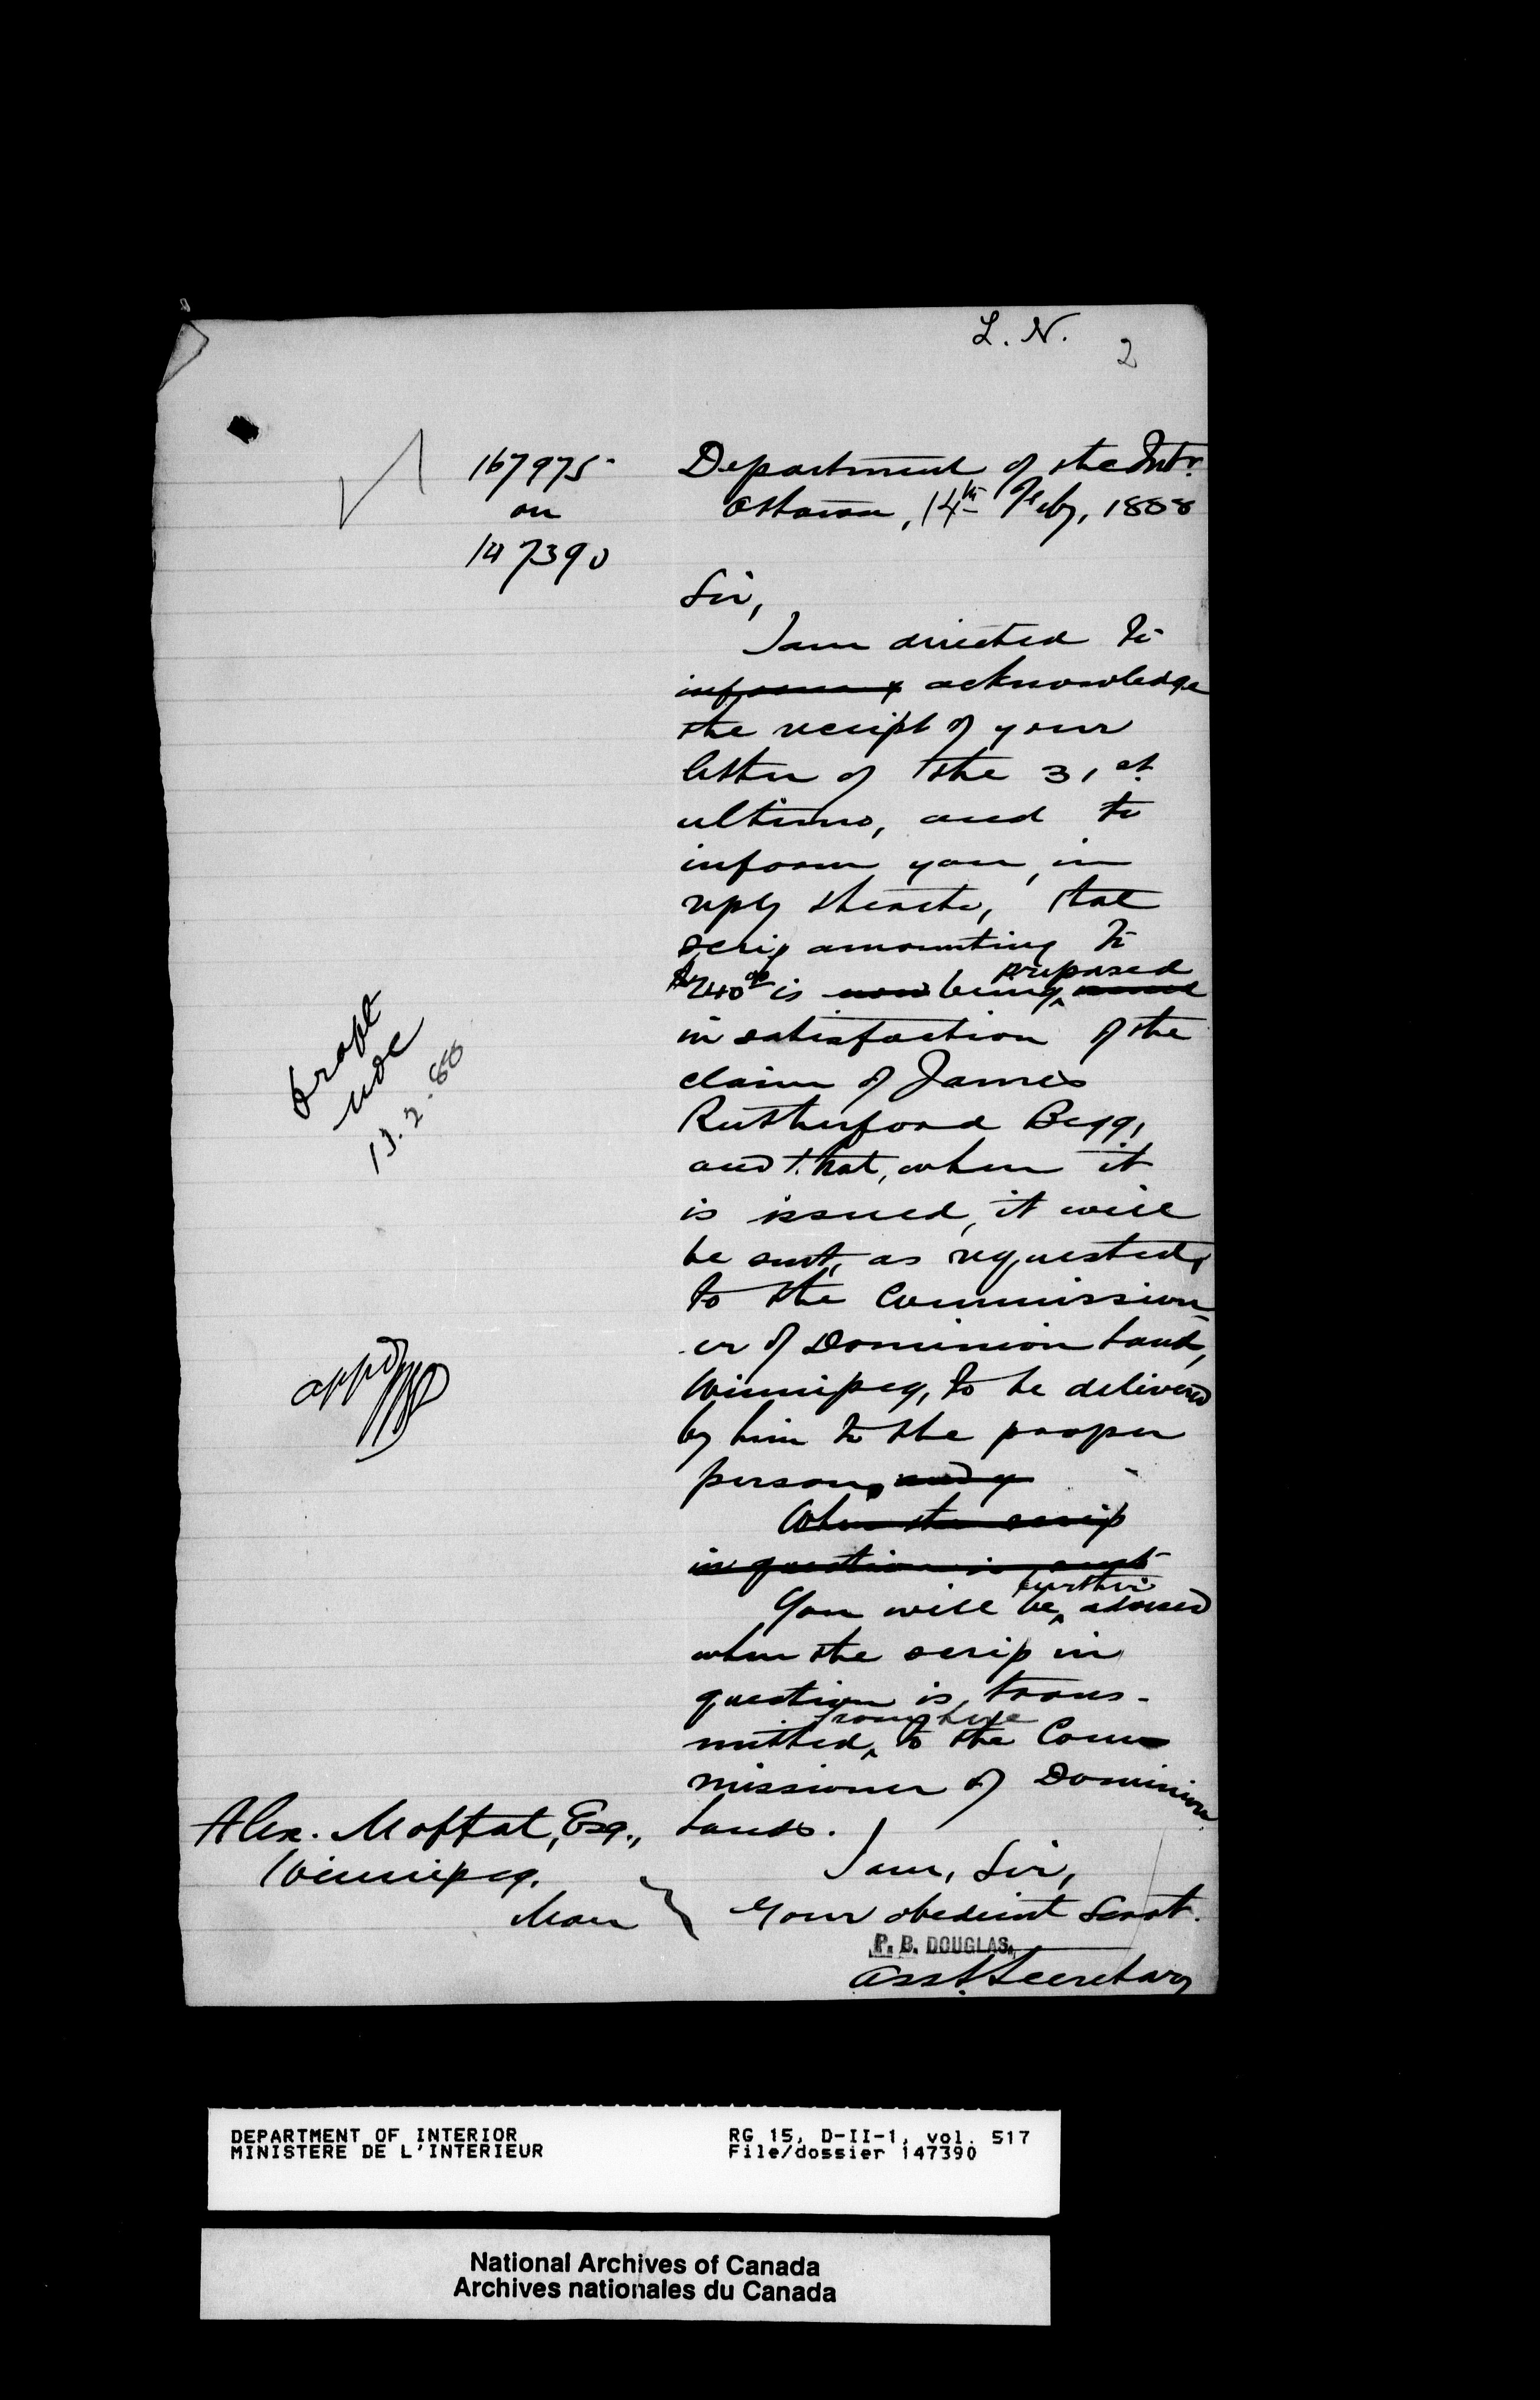 L. N. 2
167975
on
147390
Department of the Intr.
Ottawa, 14th Feby, 1888
Sir,
I am directed to
inform y acknowledge
the receipt of your
letter of the 31st
ultimo, and to
inform you, in
reply thereto, that
scrip amounting to
prepared
$240.00 is now being issued
in satisfaction of the
claim of James
Rutherford Begg,
and that, when it
is issued, it will
be sent, as requested,
to the Commission-
er of Dominion Lands,
Winnipeg, to be delivered
by him to the proper
person, and y
When the scrip
in question is sent
further
You will be advised
when the scrip in
question is trans-
from here
mitted to the Com
missioner of Dominion
Lands.
I am, Sir,
Your obedient Servt.
P. B. DOUGLAS,
Asst. Secretary
Draft
13.2.88
appd
Alex. Moffat, Esq.,
Winnipeg.
Man
DEPARTMENT OF INTERIOR
MINISTERE DE L'INTERIEUR
RG 15, D-II-1, vol. 517
File/dossier 147390
National Archives of Canada
Archives nationales du Canada